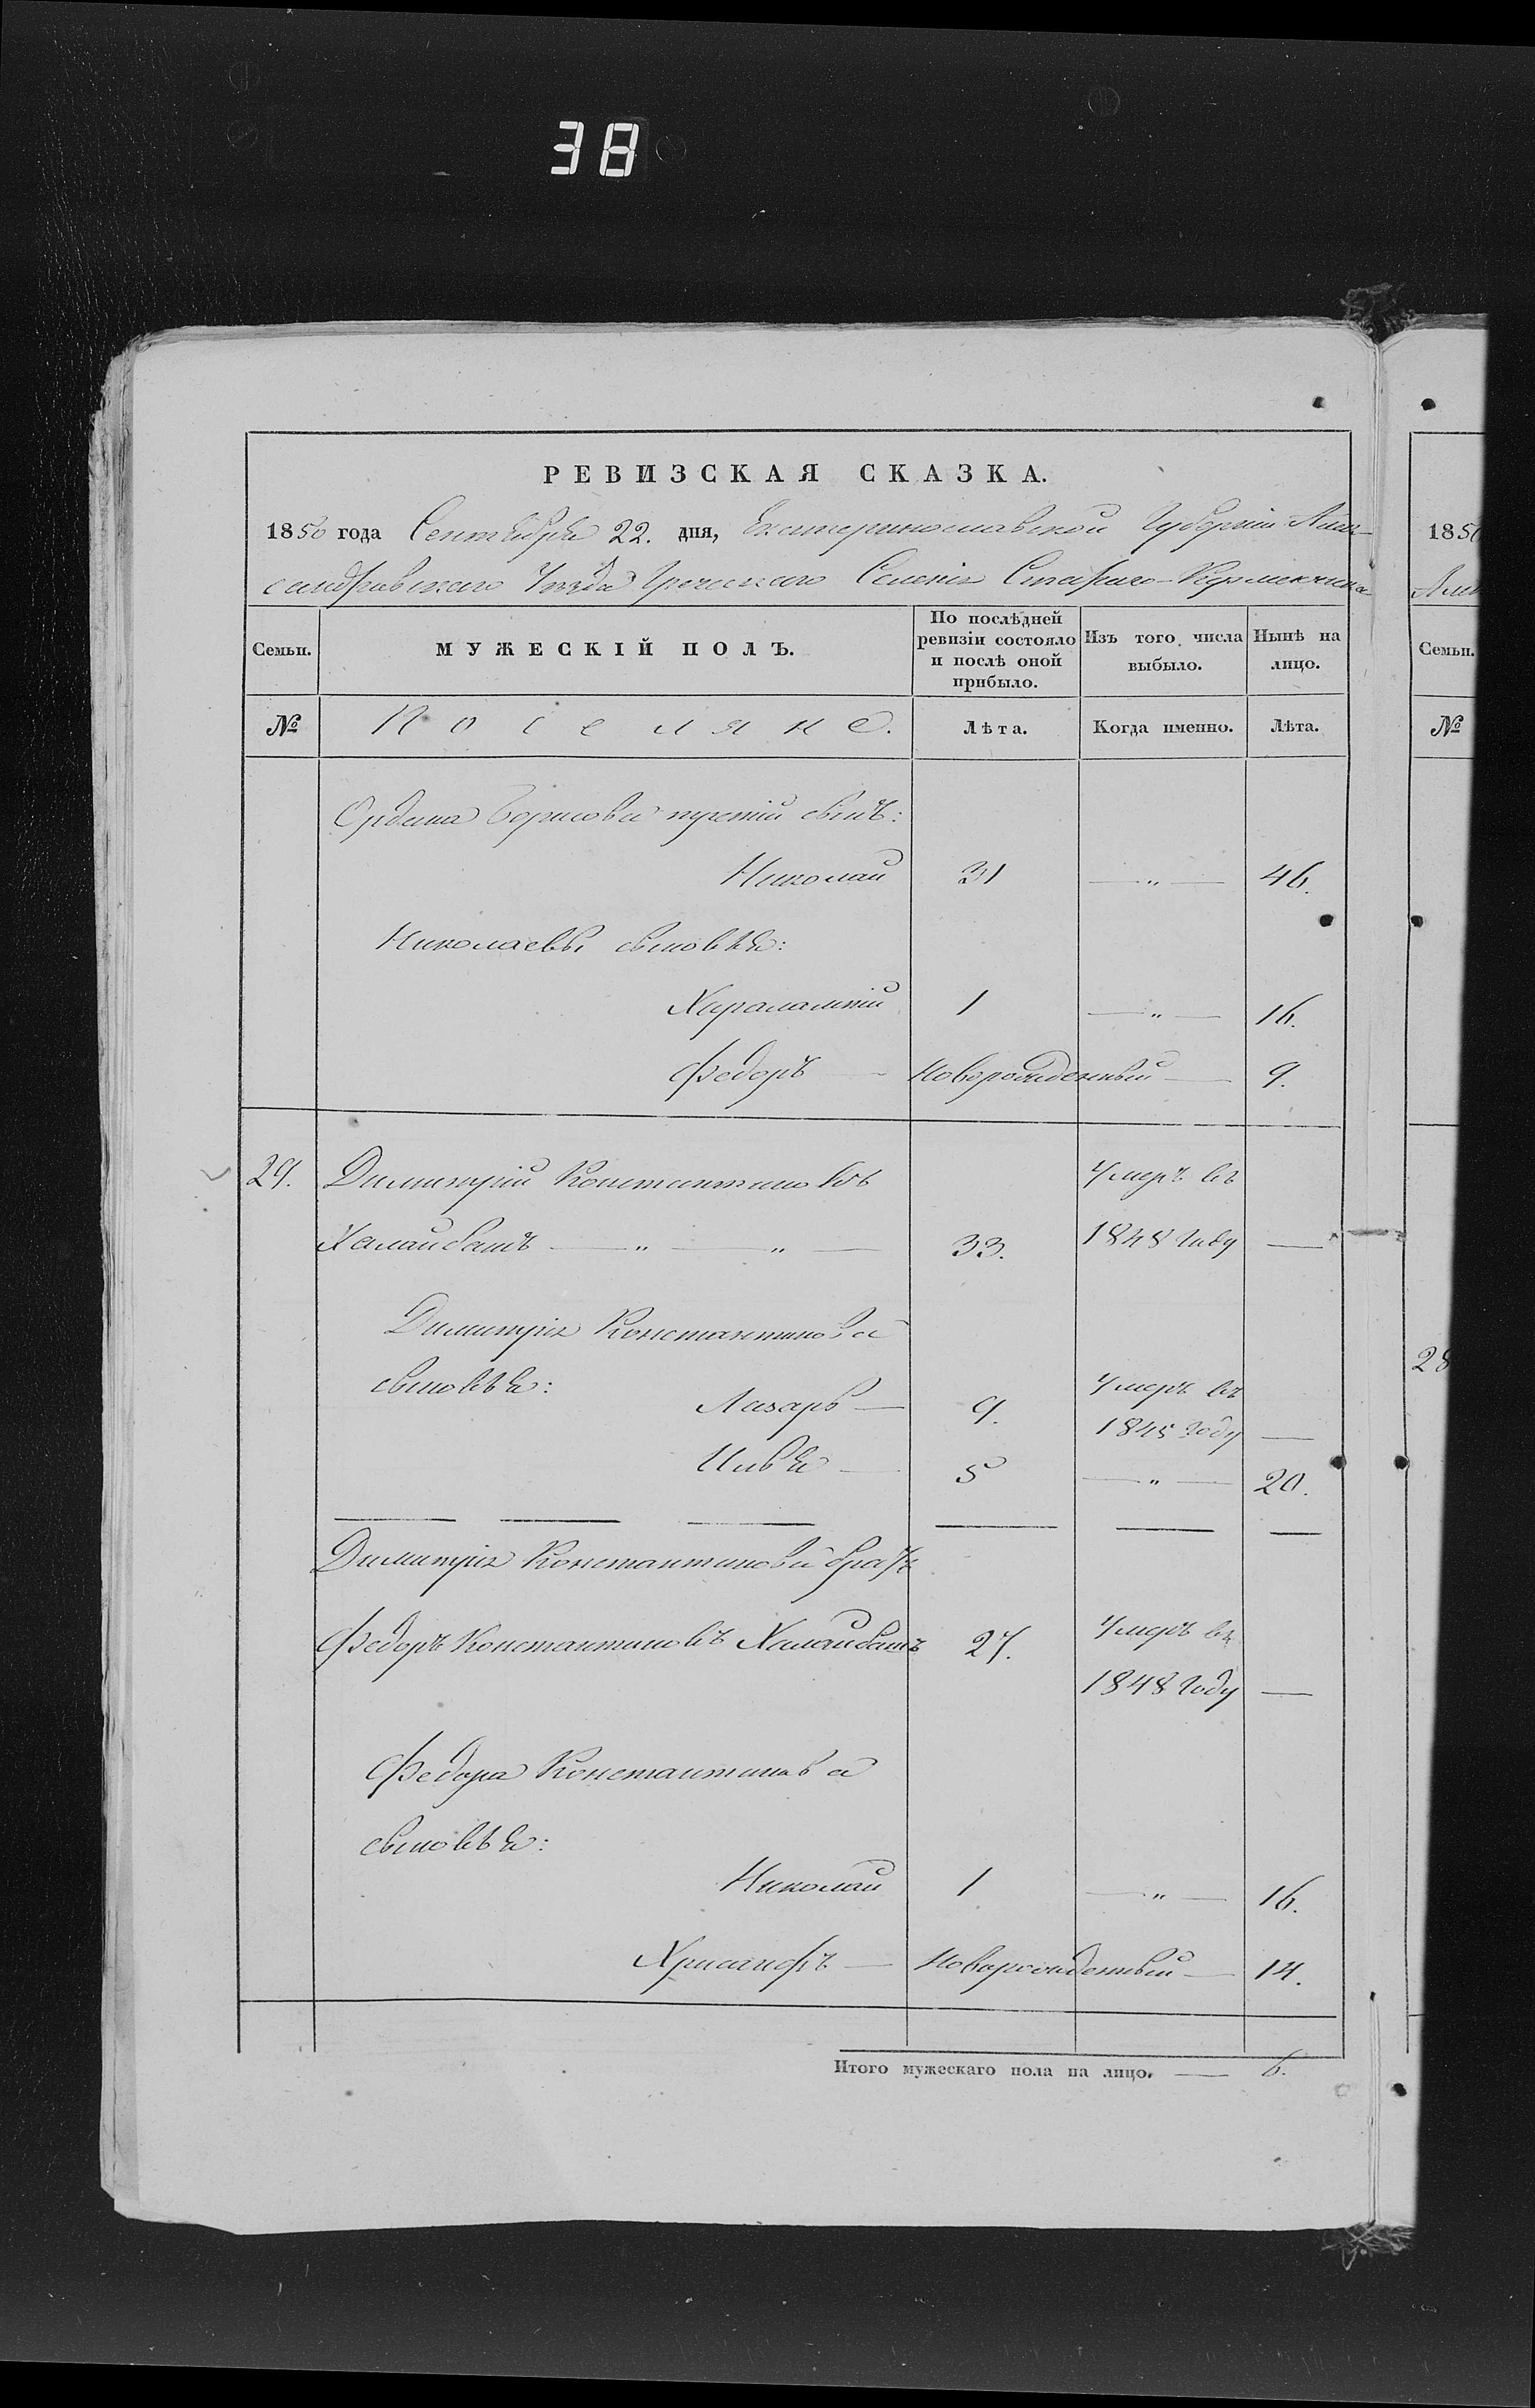 38
РЕВИЗСКАЯ СКАЗКА.
1850 года Сентября 22. дня, Екатеринославской Губерніи Алек-
сандровскаго Уѣзда Греческаго Селенія Стараго-Керменчика
Семьи.
МУЖЕСКІЙ ПОЛЪ.
По послѣдней ревизіи состояло и послѣ оной прибыло.
Изъ того числа выбыло.
Нынѣ на лицо.
№
Поселяне.
Лѣта.
Когда именно.
Лѣта.
Борисова третій сынъ:
Николай 31 — „ — 46.
Николаевы сыновья:
Харалампій 1 — „ — 16.
Федоръ — Новорожденный — 9.
29. Димитрій Константиновъ Умеръ въ
Халайбашъ — „ — „ — 33. 1848 Году —
Димитрія Константинова
сыновья: Умеръ въ
Лазарь — 9. 1845 году —
Илья — 5 — „ — 20.
Димитрія Константинова братъ
Федоръ Константиновъ Халайбашъ 27. Умеръ въ
1848 Году —
Федора Константинова
сыновья:
Николай 1 — „ — 16.
Хрисанфъ — Новорожденный — 14.
Итого мужескаго пола на лицо. — 6.
1850
Семьи.
№
28